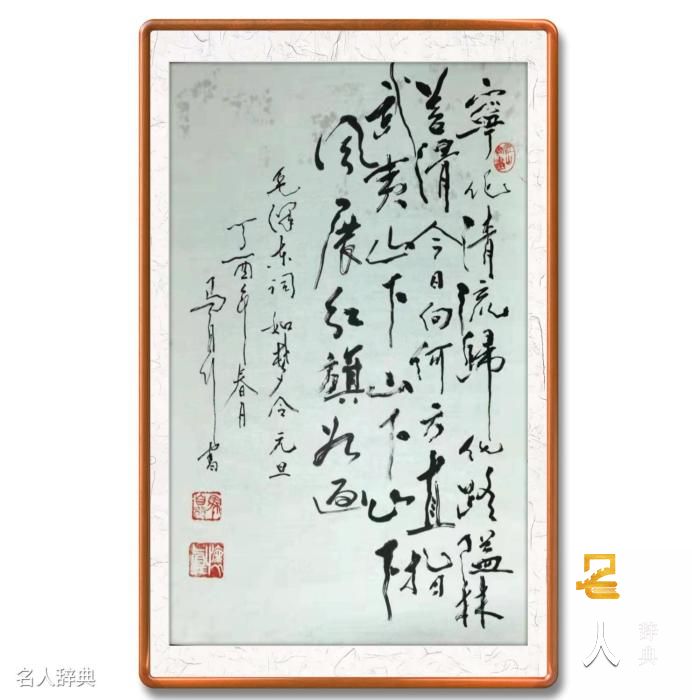 寧化清流歸化路隘林
苔滑今日向何方直指
武夷山下山下山下
风展红旗如画
毛泽东词如梦令元旦
丁酉年春月
馬 書
名人辞典
名人辞典